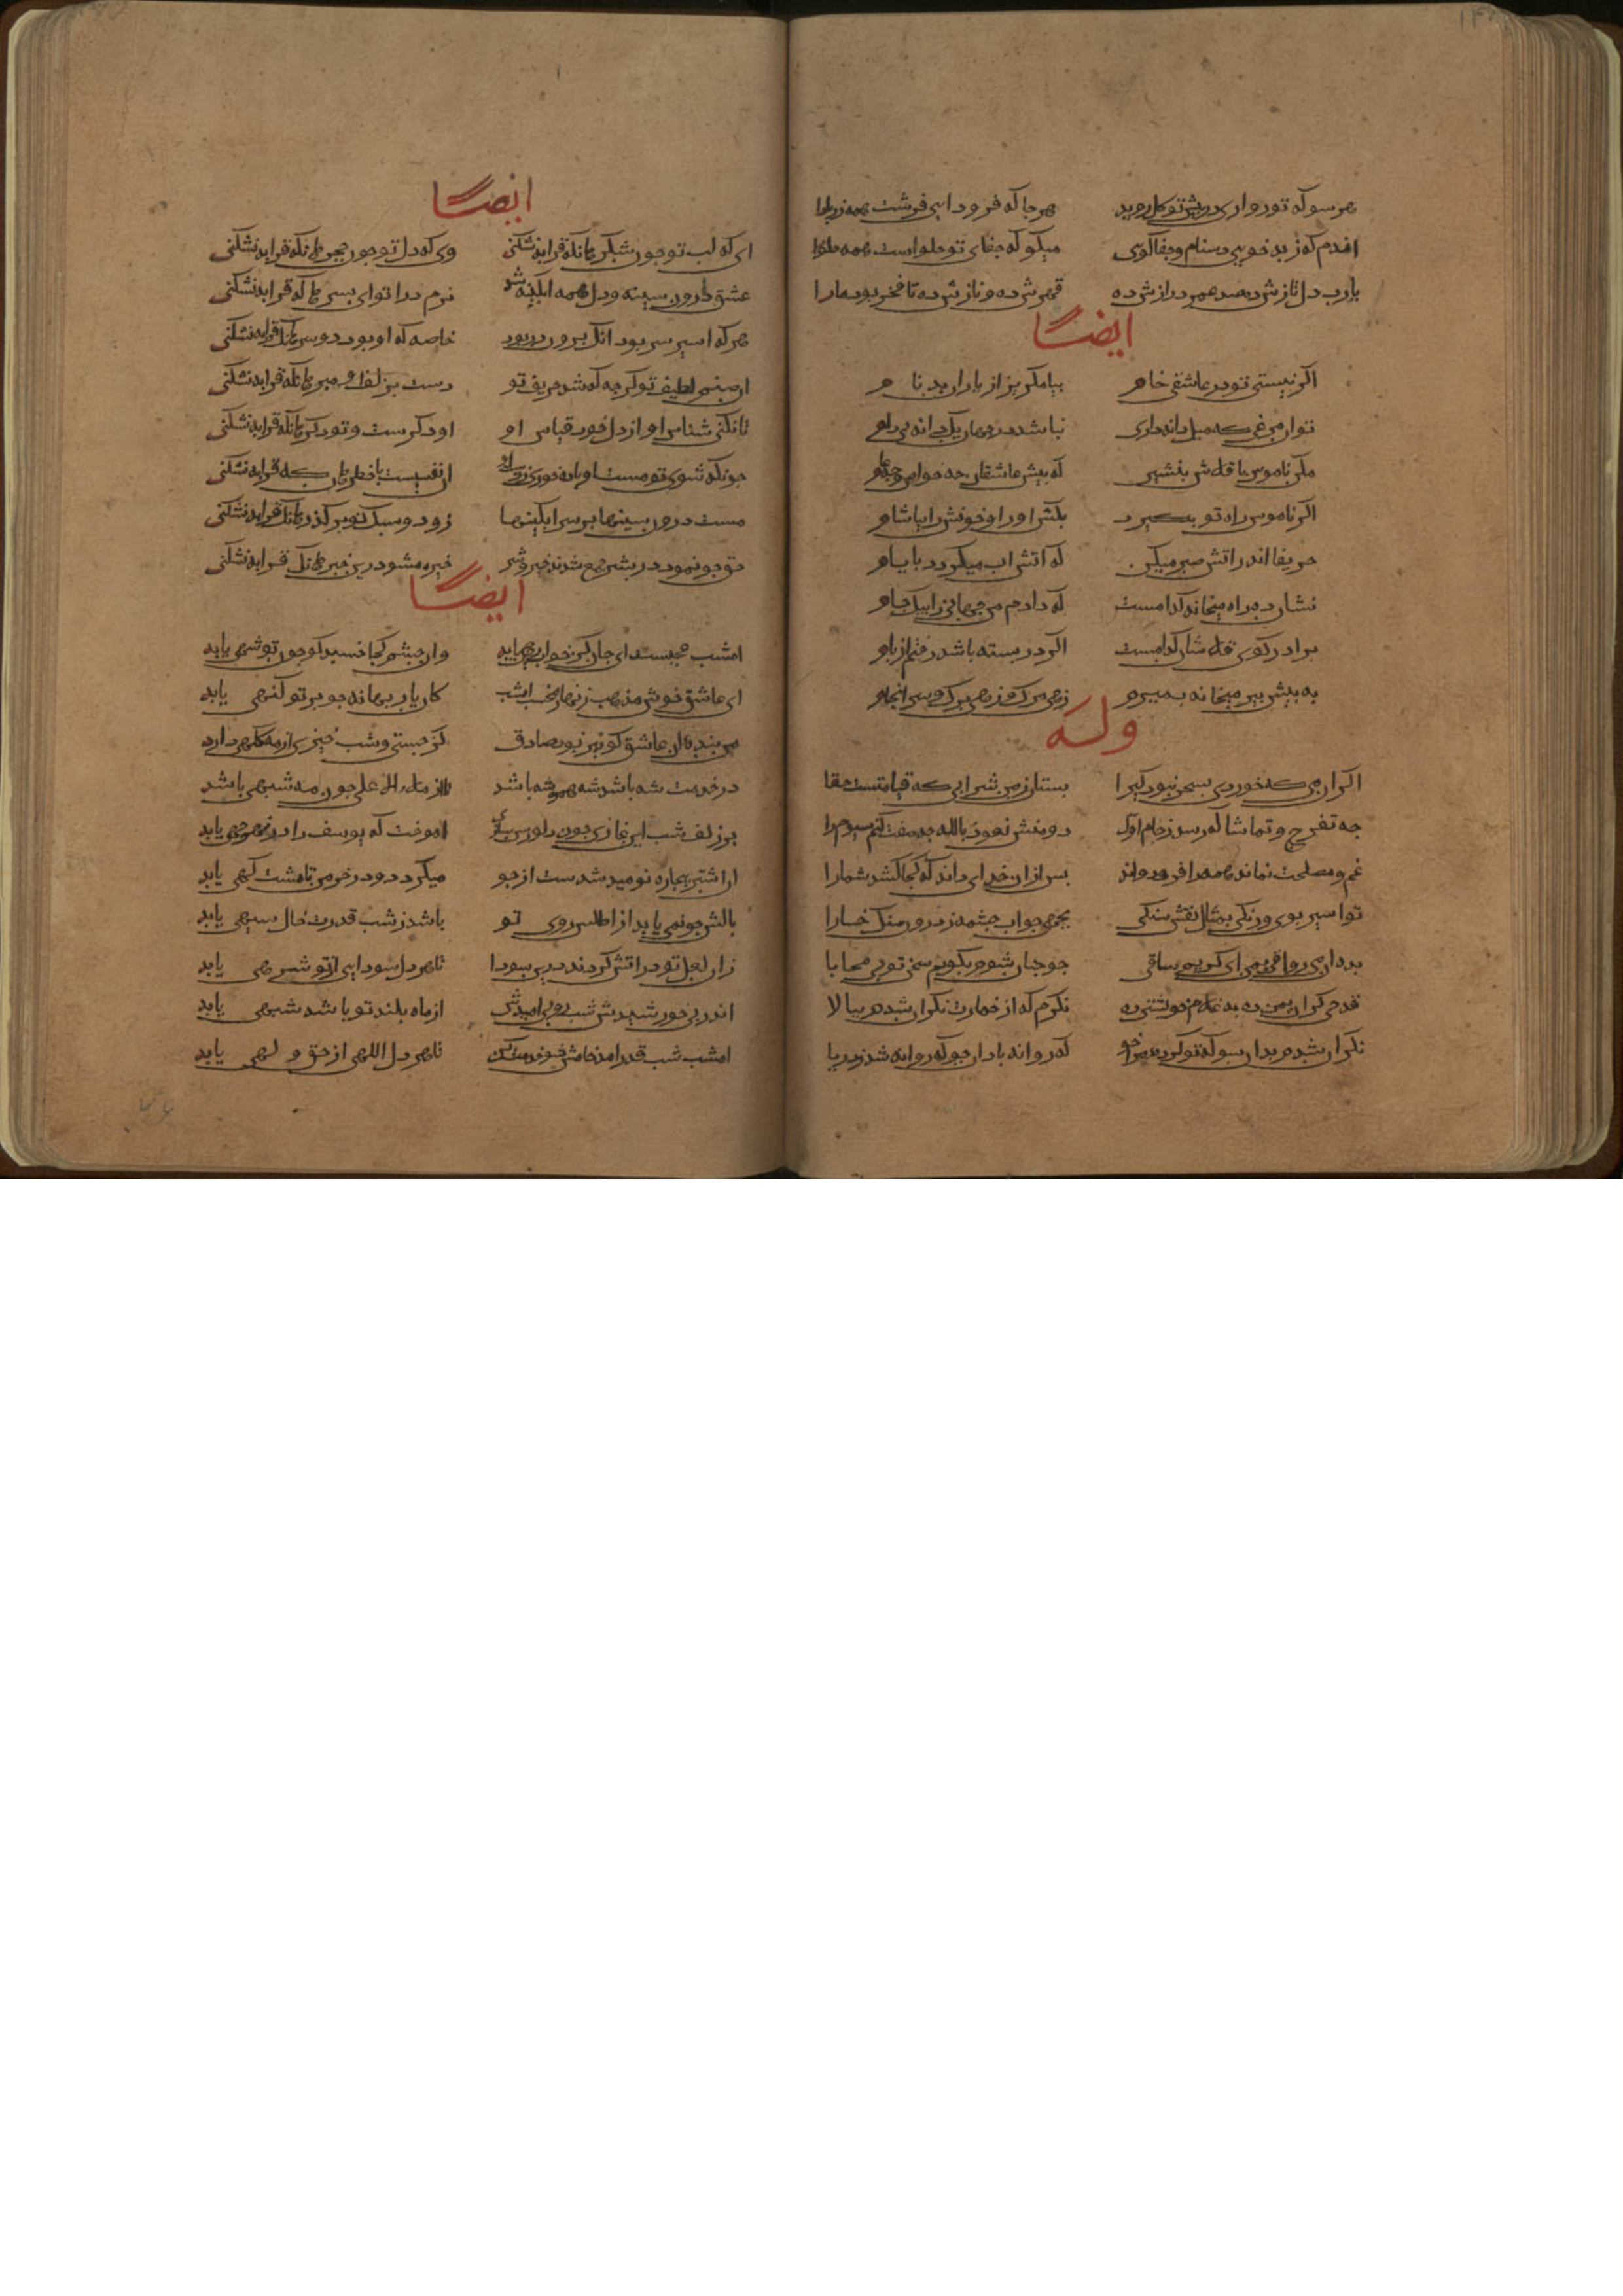 هر سو که تو رو اری در پیش تو گل روید هر جا که فرود ایی فرشت همه زر بادا
اندم که ز بد خویی دشنام و جفا گوی میکو که جفای تو حلواست همه حلوا
یارب دل نازش ده صد عمر درازش ده فهمش ده و نازش ده تا فخر بود ما را
ایضا
اکر نیستی تو در عاشقی خام بیا مکریز از یاران بدنام
تو ان مرغی که میل دانه داری نباشد در جهان یک دانه بی دام
مکن ناموس با قلاش بنشین که بیش عاشقان جه خواص و جه عام
اکر ناموس راه تو بکیرد بکش او را و خونش را بیاشام
حریفا اندر اتش صبر میکن که اتش اب میکردد بایام
نشان ده راه میخانه کدامست که دادم من جهانی را بیک جام
برادر کوی قلاشان کدامست اکر در بسته باشد رفتم از بام
به بیش بیر میخانه بمیرم زهی مرک و زهی برک و سرانجام
وله
اکر ان می که خوردی بسحر نبود کیرا بستان ز من شرابی که قیامتست حقا
جه تفرج و تماشا که رسد ز جام اول دومش نعوذ بالله جه صفت کنم سیوم را
غم و مصلحت نماند همه را فرو دراند بس از ان خدای داند که کجا کشد شما را
تو اسیر بوی و رنکی بمثال نقش سنکی بجهی جو اب جشمه ز درون سنک خارا
بده ان می رواقی هله ای کریم ساقی جو جنان شوم بکویم سخن تو بی محابا
قدحی کران بمن ده بغلام خویشتن ده نکرم که از خمارت نکران شدم ببالا
نکران شدم بدان سو که تو کرده مرا خو که روانه باد ان جو که روانه شد ز دریا
ایضا
ای که لب تو جون شکر هانکه قرابه نشکنی وی که دل تو جون حجر هانکه قرابه نشکنی
عشق درون سینه و دل همه ابکینه شد نرم درا تو ای بسر هان که قرابه نشکنی
هر که اسیر سر بود انک برون در بود خاصه که او بود دو سر هانک قرابه نشکنی
ان صنم لطیف تو کرجه که شد حریف تو دست بزلف او مبر هانکه قرابه نشکنی
تا نکنی شناس او از دل خود قیاس او او دکرست و تو دکر هانکه قرابه نشکنی
جونکه شوی تو مست او باده خوری ز دست او ان نفسیست با خطر هان که قرابه نشکنی
مست درون سینها بر سر ابکینها زود و سبک تو بر کذر هانک قرابه نشکنی
حق جو نمود در بشر جمع شدند خیر و شر خیره مشو درین خبر هانک قرابه نشکنی
ایضا
امشب عجبست ای جان کر خواب رهی یابد وان جشم کجا خسبد کو جون تو شهی یابد
ای عاشق خوش مذهب زنهار مخسب امشب کان یار بهانه جو بر تو کنهی یابد
من بنده ان عاشق کو نر بود و صادق کز جستی و شب خیزی از مه کلهی دارد
در خدمت شه باشد شه همره شه باشد تا از ملاء الاعلی جون مه شبهی باشد
بر زلف شب ان غازی جون دلو رسن بازی اموخت که یوسف را در قعر جهی یابد
ان اشتر بیجاره نومید شدست از جو میکردد و در خرمن تا مشت کهی یابد
بالش جو نمی یابد از اطلس روی تو باشد ز شب قدرت خال سیهی یابد
زان لعل تو در اتش کردند درین سودا تا هر دل سودایی از تو شرهی یابد
اندر بی خورشیدش شب رو بی امیدش تا از ماه بلند تو با شد شبهی یابد
امشب شب قدر امد خامش شو و خدمت کن تا هر دل اللهی از حق ولهی یابد